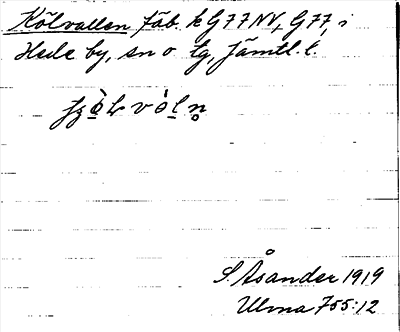 Kölvallen fäb. k G77NV, G77, i
Hede by, sn o tg, Jämtl. l.
S. Åsander 1919
Ulma 755:12